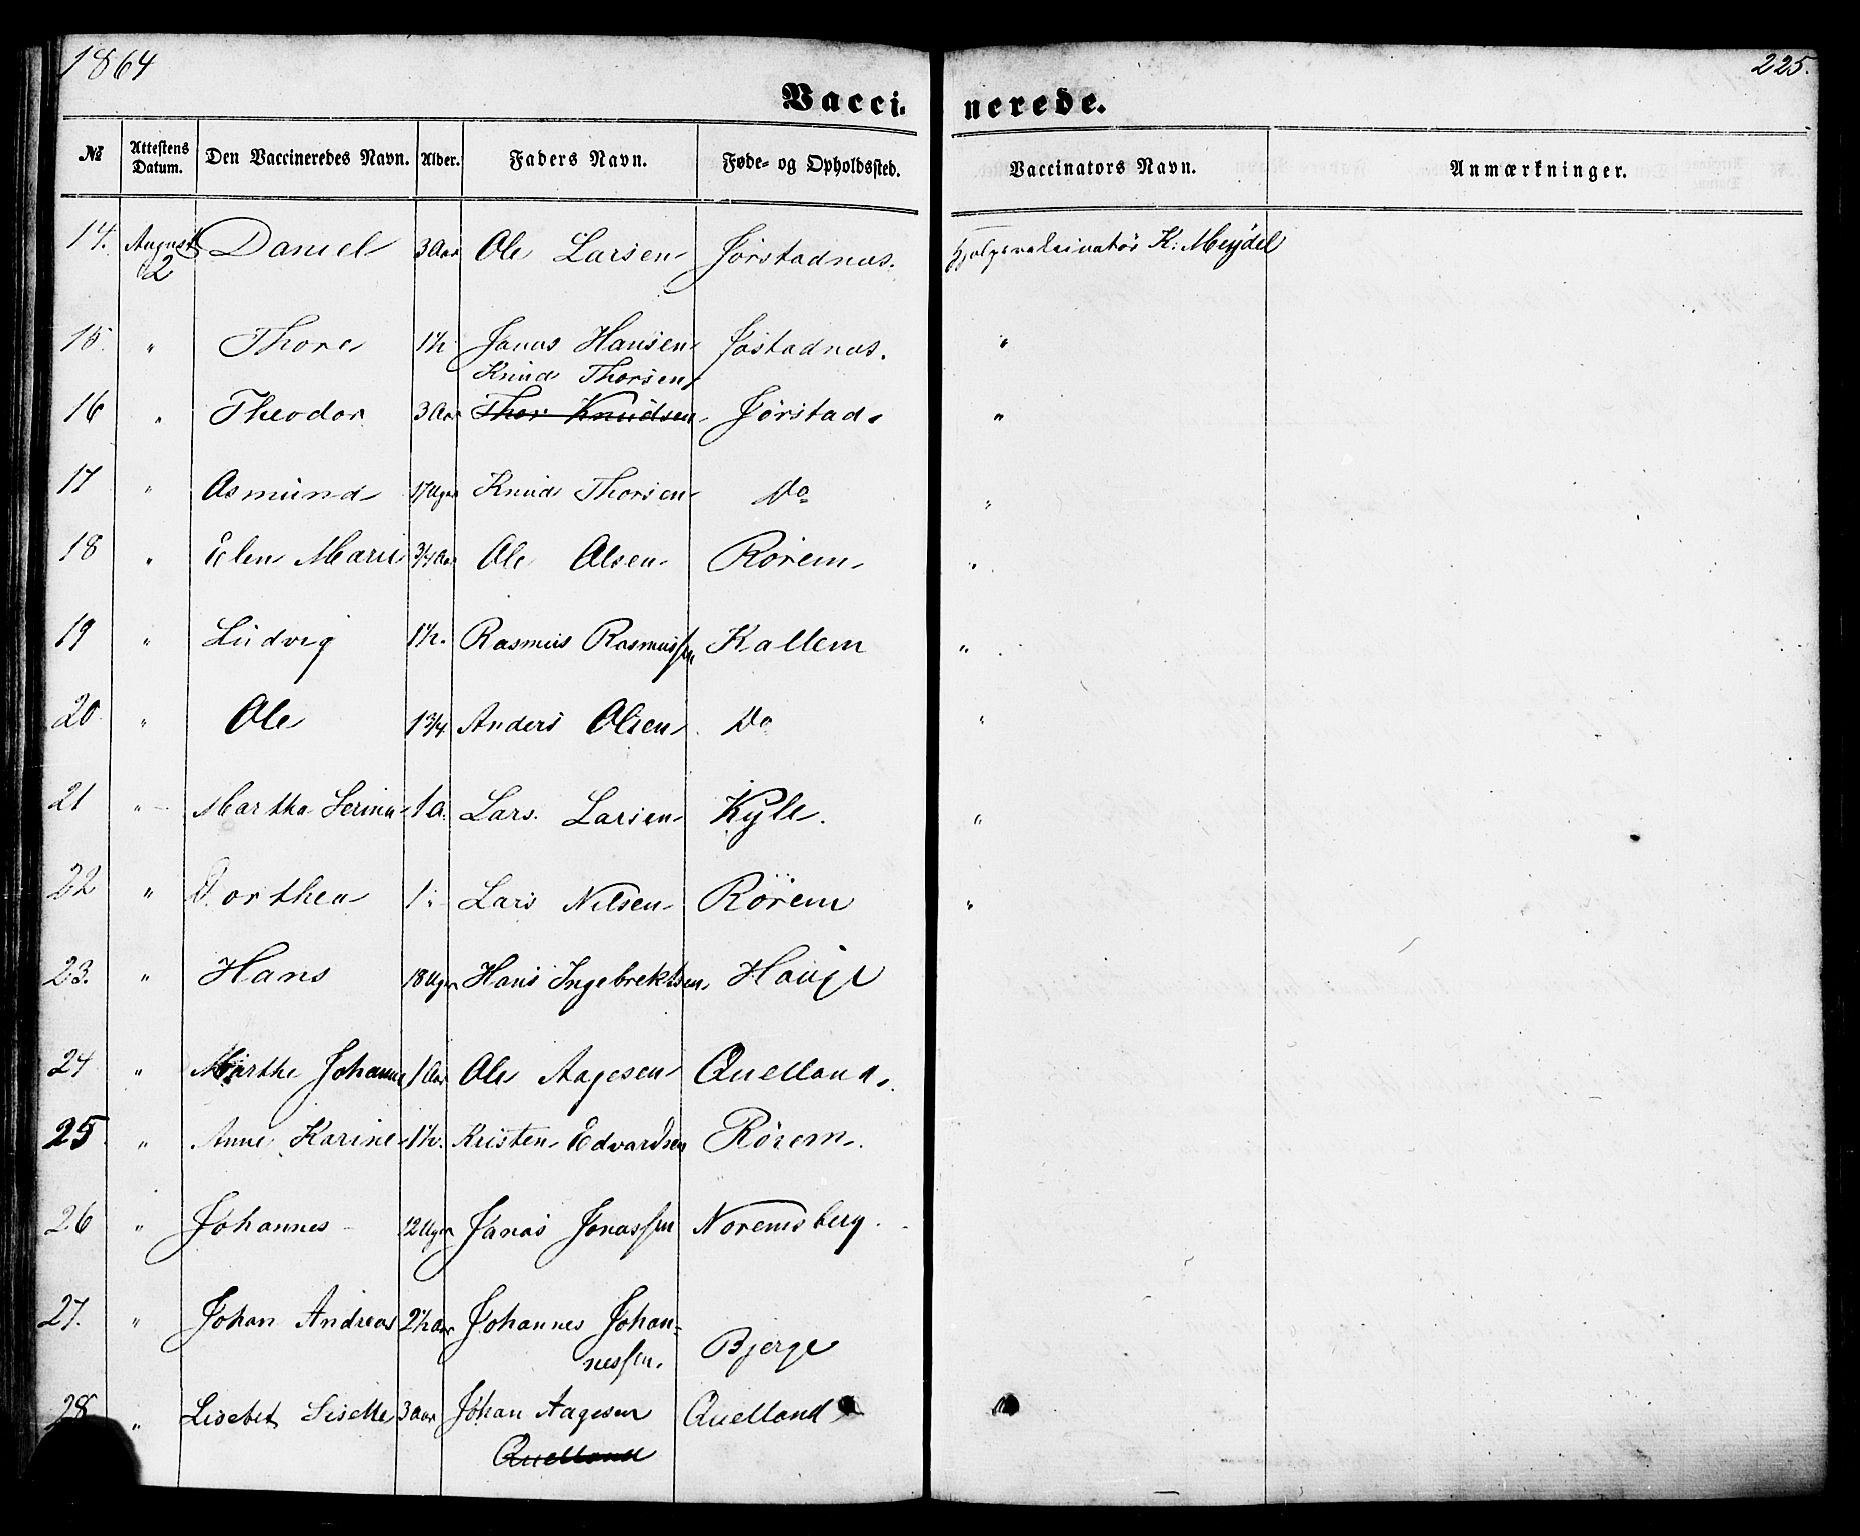 1864
225.
Vacci. nerede.
№ Attestens Datum. Den Vaccineredes Navn. Alder. Faders Navn. Føde- og Opholdssted. Vaccinators Navn. Anmærkninger.
14. August 2 Daniel 3 Aar Ole Larsen Jørstadnæs. Hjelpevaksinatør K: Meydel
15. " Thore 1½ Jonas Hansen Jøstadnæs. "
Knud Thorsen
16 " Theodor 3 Aar Thor Knudsen Jørstad "
17 " Asmund 17 Uger Knud Thorsen Do "
18 " Elen Marie 3/4 Aar Ole Olsen Rørem "
19 " Ludvig 1½. Rasmus Rasmussen Kallem "
20 " Ole 1 3/4. Anders Olsen Do "
21 " Martha Serina 1 A. Lars Larsen Kyle. "
22 " Dorthea 1 " Lars Nilsen Rørem "
23. " Hans 18 Uger Hans Ingebrektsen Hauge
24 " Marthe Johanne 1 Aar Ole Aagesen Quelland.
25 " Anne Karine 1½. Kristen Edvardsen Rørem.
26 " Johannes 12 Uger Jonas Jonassen Noremsberg.
27. " Johan Andreas 2½ Aar Johannes Johan-
nessen. Bjerge
28 " Lisebet Siselle 3 Aar Johan Aagesen Quelland
Quelland